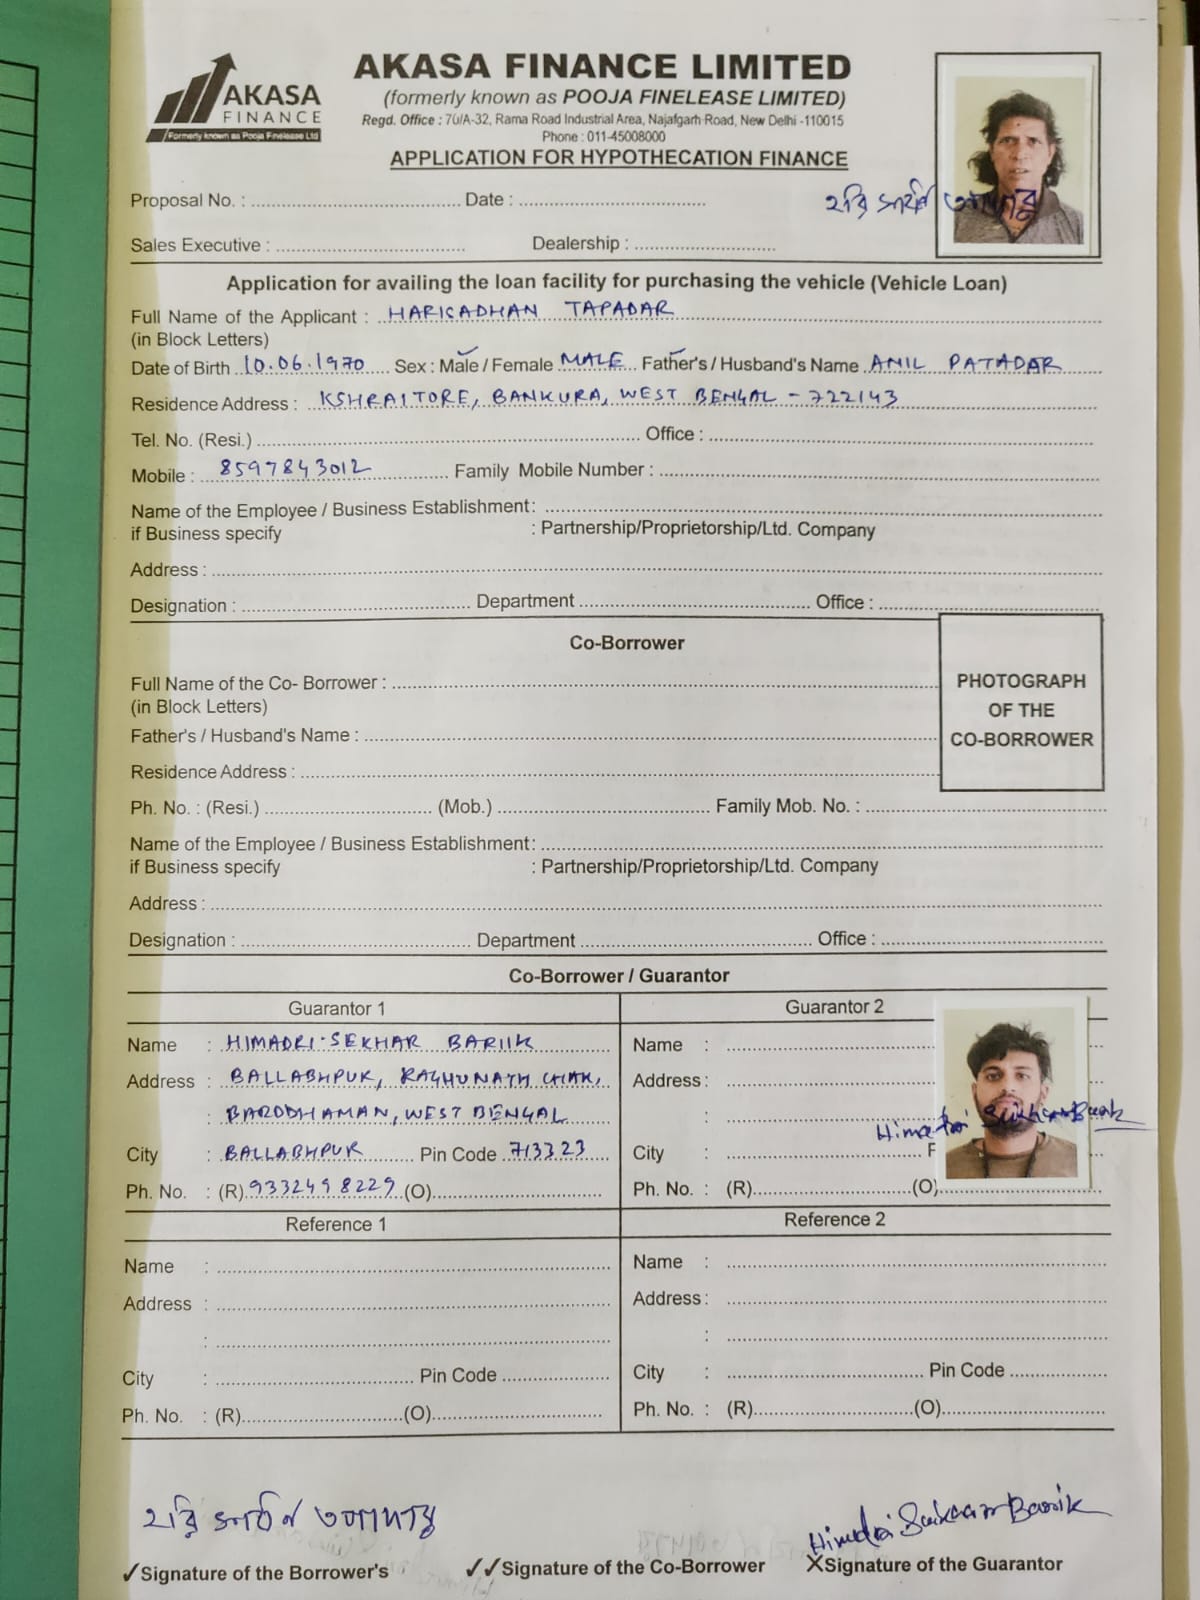 AKASA
FINANCE
Formerly known as Pooja Finelease Ltd
AKASA FINANCE LIMITED
(formerly known as POOJA FINELEASE LIMITED)
Regd. Office : 70/A-32, Rama Road Industrial Area, Najafgarh Road, New Delhi -110015
Phone : 011-45008000
APPLICATION FOR HYPOTHECATION FINANCE
Proposal No. : Date :
হরি সাধন তপাদার
Sales Executive : Dealership :
Application for availing the loan facility for purchasing the vehicle (Vehicle Loan)
Full Name of the Applicant : HARISADHAN TAPADAR
(in Block Letters)
Date of Birth 10.06.1970 Sex : Male / Female MALE Father's / Husband's Name ANIL PATADAR
Residence Address : KSHRAITORE, BANKURA, WEST BENGAL - 722143
Tel. No. (Resi.) Office :
Mobile : 8597843012 Family Mobile Number :
Name of the Employee / Business Establishment:
if Business specify : Partnership/Proprietorship/Ltd. Company
Address :
Designation : Department Office :
Co-Borrower
Full Name of the Co- Borrower :
(in Block Letters)
PHOTOGRAPH
OF THE
CO-BORROWER
Father's / Husband's Name :
Residence Address :
Ph. No. : (Resi.) (Mob.) Family Mob. No. :
Name of the Employee / Business Establishment:
if Business specify : Partnership/Proprietorship/Ltd. Company
Address :
Designation : Department Office :
Co-Borrower / Guarantor
Guarantor 1 Guarantor 2
Name : HIMADRI SEKHAR BARIIK Name :
Address : BALLABHPUR, RAGHUNATH CHAK, Address :
: BARDDHAMAN, WEST BENGAL :
City : BALLABHPUR Pin Code 713323 City : P
Ph. No. : (R) 9332498229 (O) Ph. No. : (R) (O)
Reference 1 Reference 2
Name : Name :
Address : Address :
: :
City : Pin Code City : Pin Code
Ph. No. : (R) (O) Ph. No. : (R) (O)
হরি সাধন তপাদার
✓Signature of the Borrower's ✓✓Signature of the Co-Borrower XSignature of the Guarantor